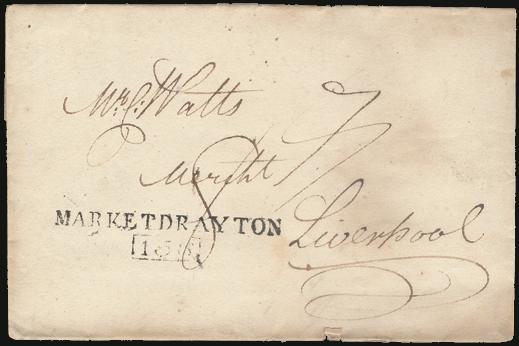 Mr. C. Watts
Mercht
8
MARKET DRAYTON
Liverpool